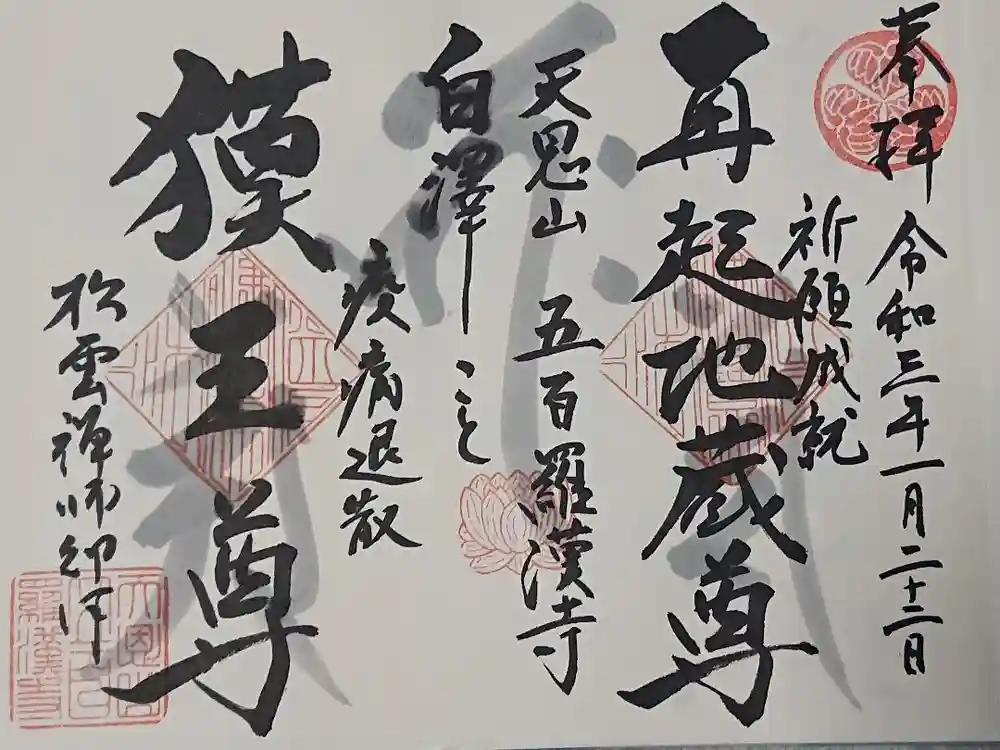 奉拝
令和三年一月二十二日
祈願成就
再起地蔵尊
天恩山 五百羅漢寺
白澤こと
疫病退散
獏王尊
松雲禅師御作
天恩山五百羅漢寺